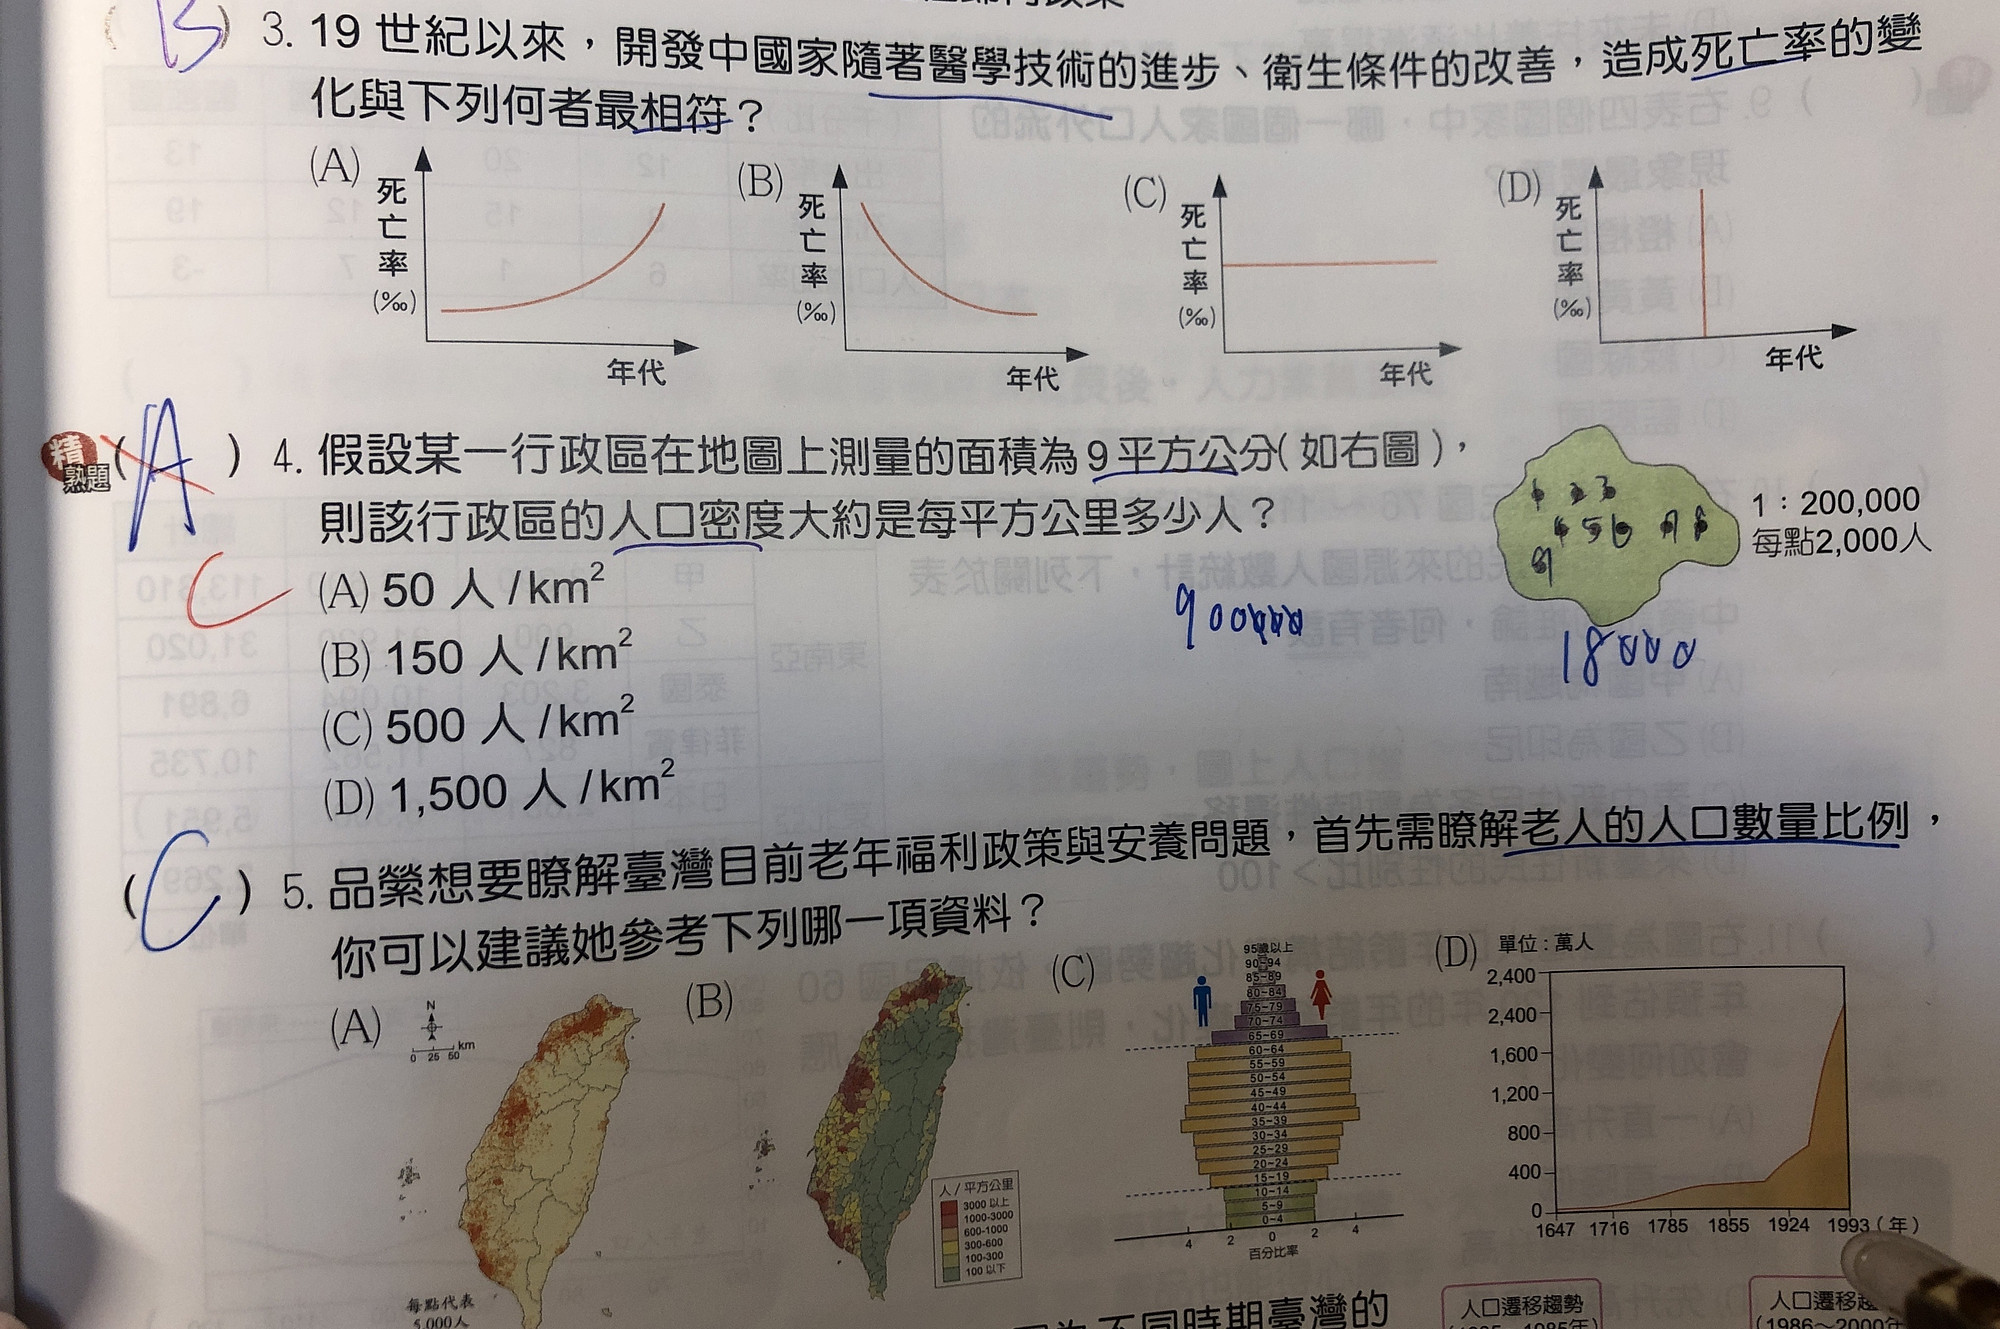 (B) 3. 19 世紀以來，開發中國家隨著醫學技術的進步、衛生條件的改善，造成死亡率的變
化與下列何者最相符？
(A) 死亡率(‰) 年代
(B) 死亡率(‰) 年代
(C) 死亡率(‰) 年代
(D) 死亡率(‰) 年代
精熟題 (A) 4. 假設某一行政區在地圖上測量的面積為9平方公分(如右圖)，
則該行政區的人口密度大約是每平方公里多少人？
C
(A) 50 人/km²
(B) 150 人/km²
(C) 500 人/km²
(D) 1,500 人/km²
1：200,000
每點2,000人
1 2 3
4 5 6 7 8
9
18000
(C) 5. 品縈想要瞭解臺灣目前老年福利政策與安養問題，首先需瞭解老人的人口數量比例，
你可以建議她參考下列哪一項資料？
(A)
N
0 25 50 km
每點代表
5,000人
(B)
人/平方公里
3000 以上
1000-3000
600-1000
300-600
100-300
100 以下
(C)
95歲以上
90~94
85~89
80~84
75~79
70~74
65~69
60~64
55~59
50~54
45~49
40~44
35~39
30~34
25~29
20~24
15~19
10~14
5~9
0~4
4 2 0 2 4
百分比率
(D) 單位：萬人
2,400
2,400
1,600
1,200
800
400
0
1647 1716 1785 1855 1924 1993（年）
不同時期臺灣的
人口遷移趨勢
人口遷移趨
(1986～2000年